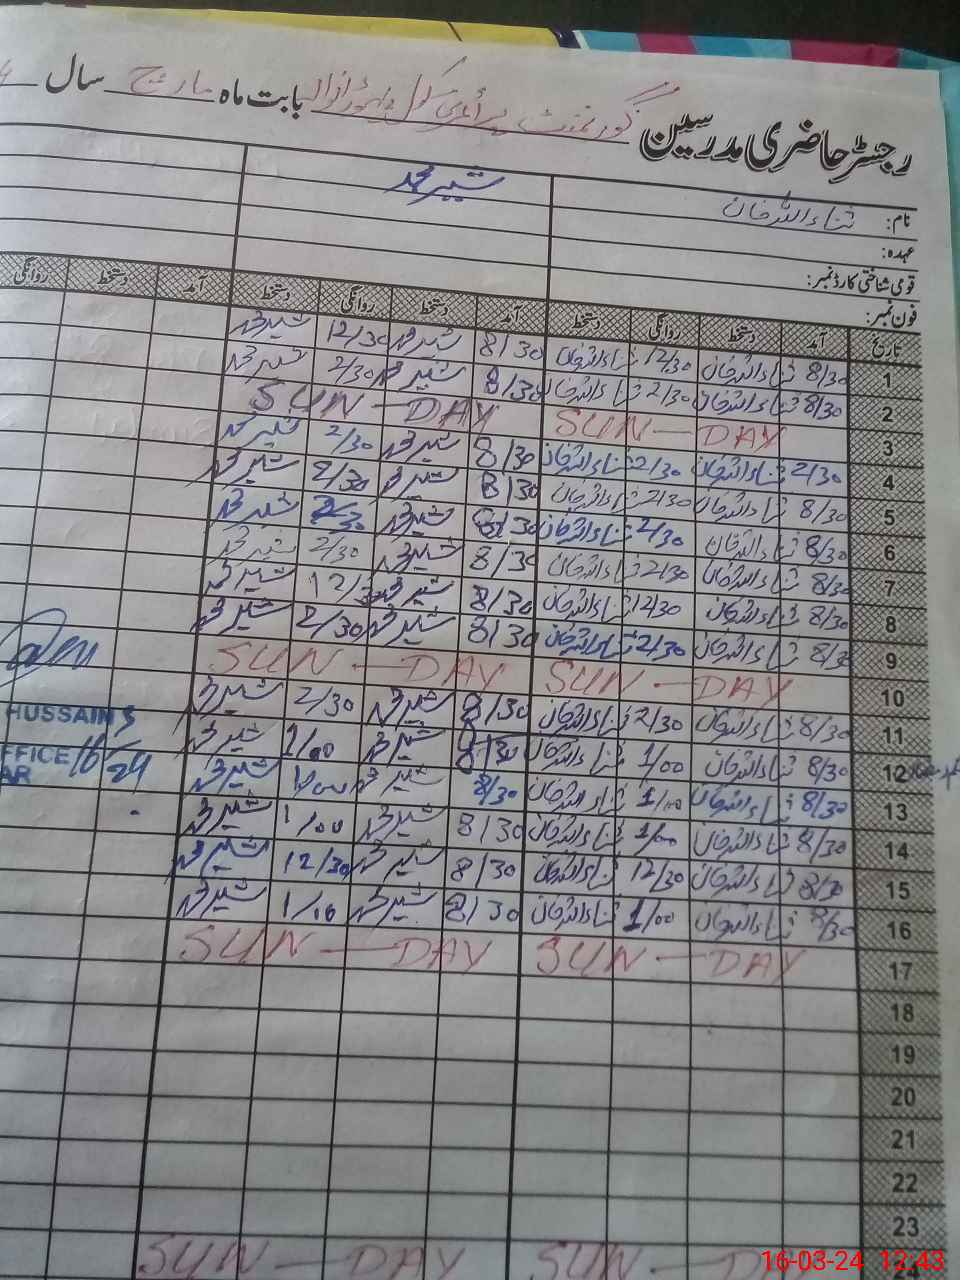 رجسٹر حاضری مدرسین گورنمنٹ پرائمری بابت ماہ مارچ سال
نام: ثناء اللہ خان شیر محمد
عہدہ:
قومی شناختی کارڈ نمبر:
فون نمبر:
تاریخ آمد دستخط روانگی دستخط آمد دستخط روانگی دستخط آمد دستخط روانگی
1 8/30 ثناء اللہ خان 12/30 ثناء اللہ خان 8/30 شیر محمد 12/30 شیر محمد
2 8/30 ثناء اللہ خان 2/30 ثناء اللہ خان 8/30 شیر محمد 2/30 شیر محمد
3 SUN—DAY SUN—DAY
4 2/30 ثناء اللہ خان 2/30 ثناء اللہ خان 8/30 شیر محمد 2/30 شیر محمد
5 8/30 ثناء اللہ خان 2/30 ثناء اللہ خان 8/30 شیر محمد 2/30 شیر محمد
6 8/30 ثناء اللہ خان 2/30 ثناء اللہ خان 8/30 شیر محمد 2/30 شیر محمد
7 8/30 ثناء اللہ خان 2/30 ثناء اللہ خان 8/30 شیر محمد 2/30 شیر محمد
8 8/30 ثناء اللہ خان 12/30 ثناء اللہ خان 8/30 شیر محمد شیر محمد
9 8/30 ثناء اللہ خان 2/30 ثناء اللہ خان 8/30 شیر محمد 2/30 شیر محمد
10 SUN—DAY SUN—DAY
11 8/30 ثناء اللہ خان 2/30 ثناء اللہ خان 8/30 شیر محمد 2/30 شیر محمد
12 8/30 ثناء اللہ خان 1/00 ثناء اللہ خان 8/30 شیر محمد 1/00 شیر محمد
13 8/30 ثناء اللہ خان 1/00 ثناء اللہ خان 8/30 شیر محمد شیر محمد
14 8/30 ثناء اللہ خان 1/00 ثناء اللہ خان 8/30 شیر محمد 1/00 شیر محمد
15 8/30 ثناء اللہ خان 12/30 ثناء اللہ خان 8/30 شیر محمد 12/30 شیر محمد
16 8/30 ثناء اللہ خان 1/00 ثناء اللہ خان 8/30 شیر محمد 1/00 شیر محمد
17 SUN—DAY SUN—DAY
18
19
20
21
22
23
SUN—DAY SUN—D
HUSSAIN
FFICE 16/3/24
AR
16-03-24 12:43